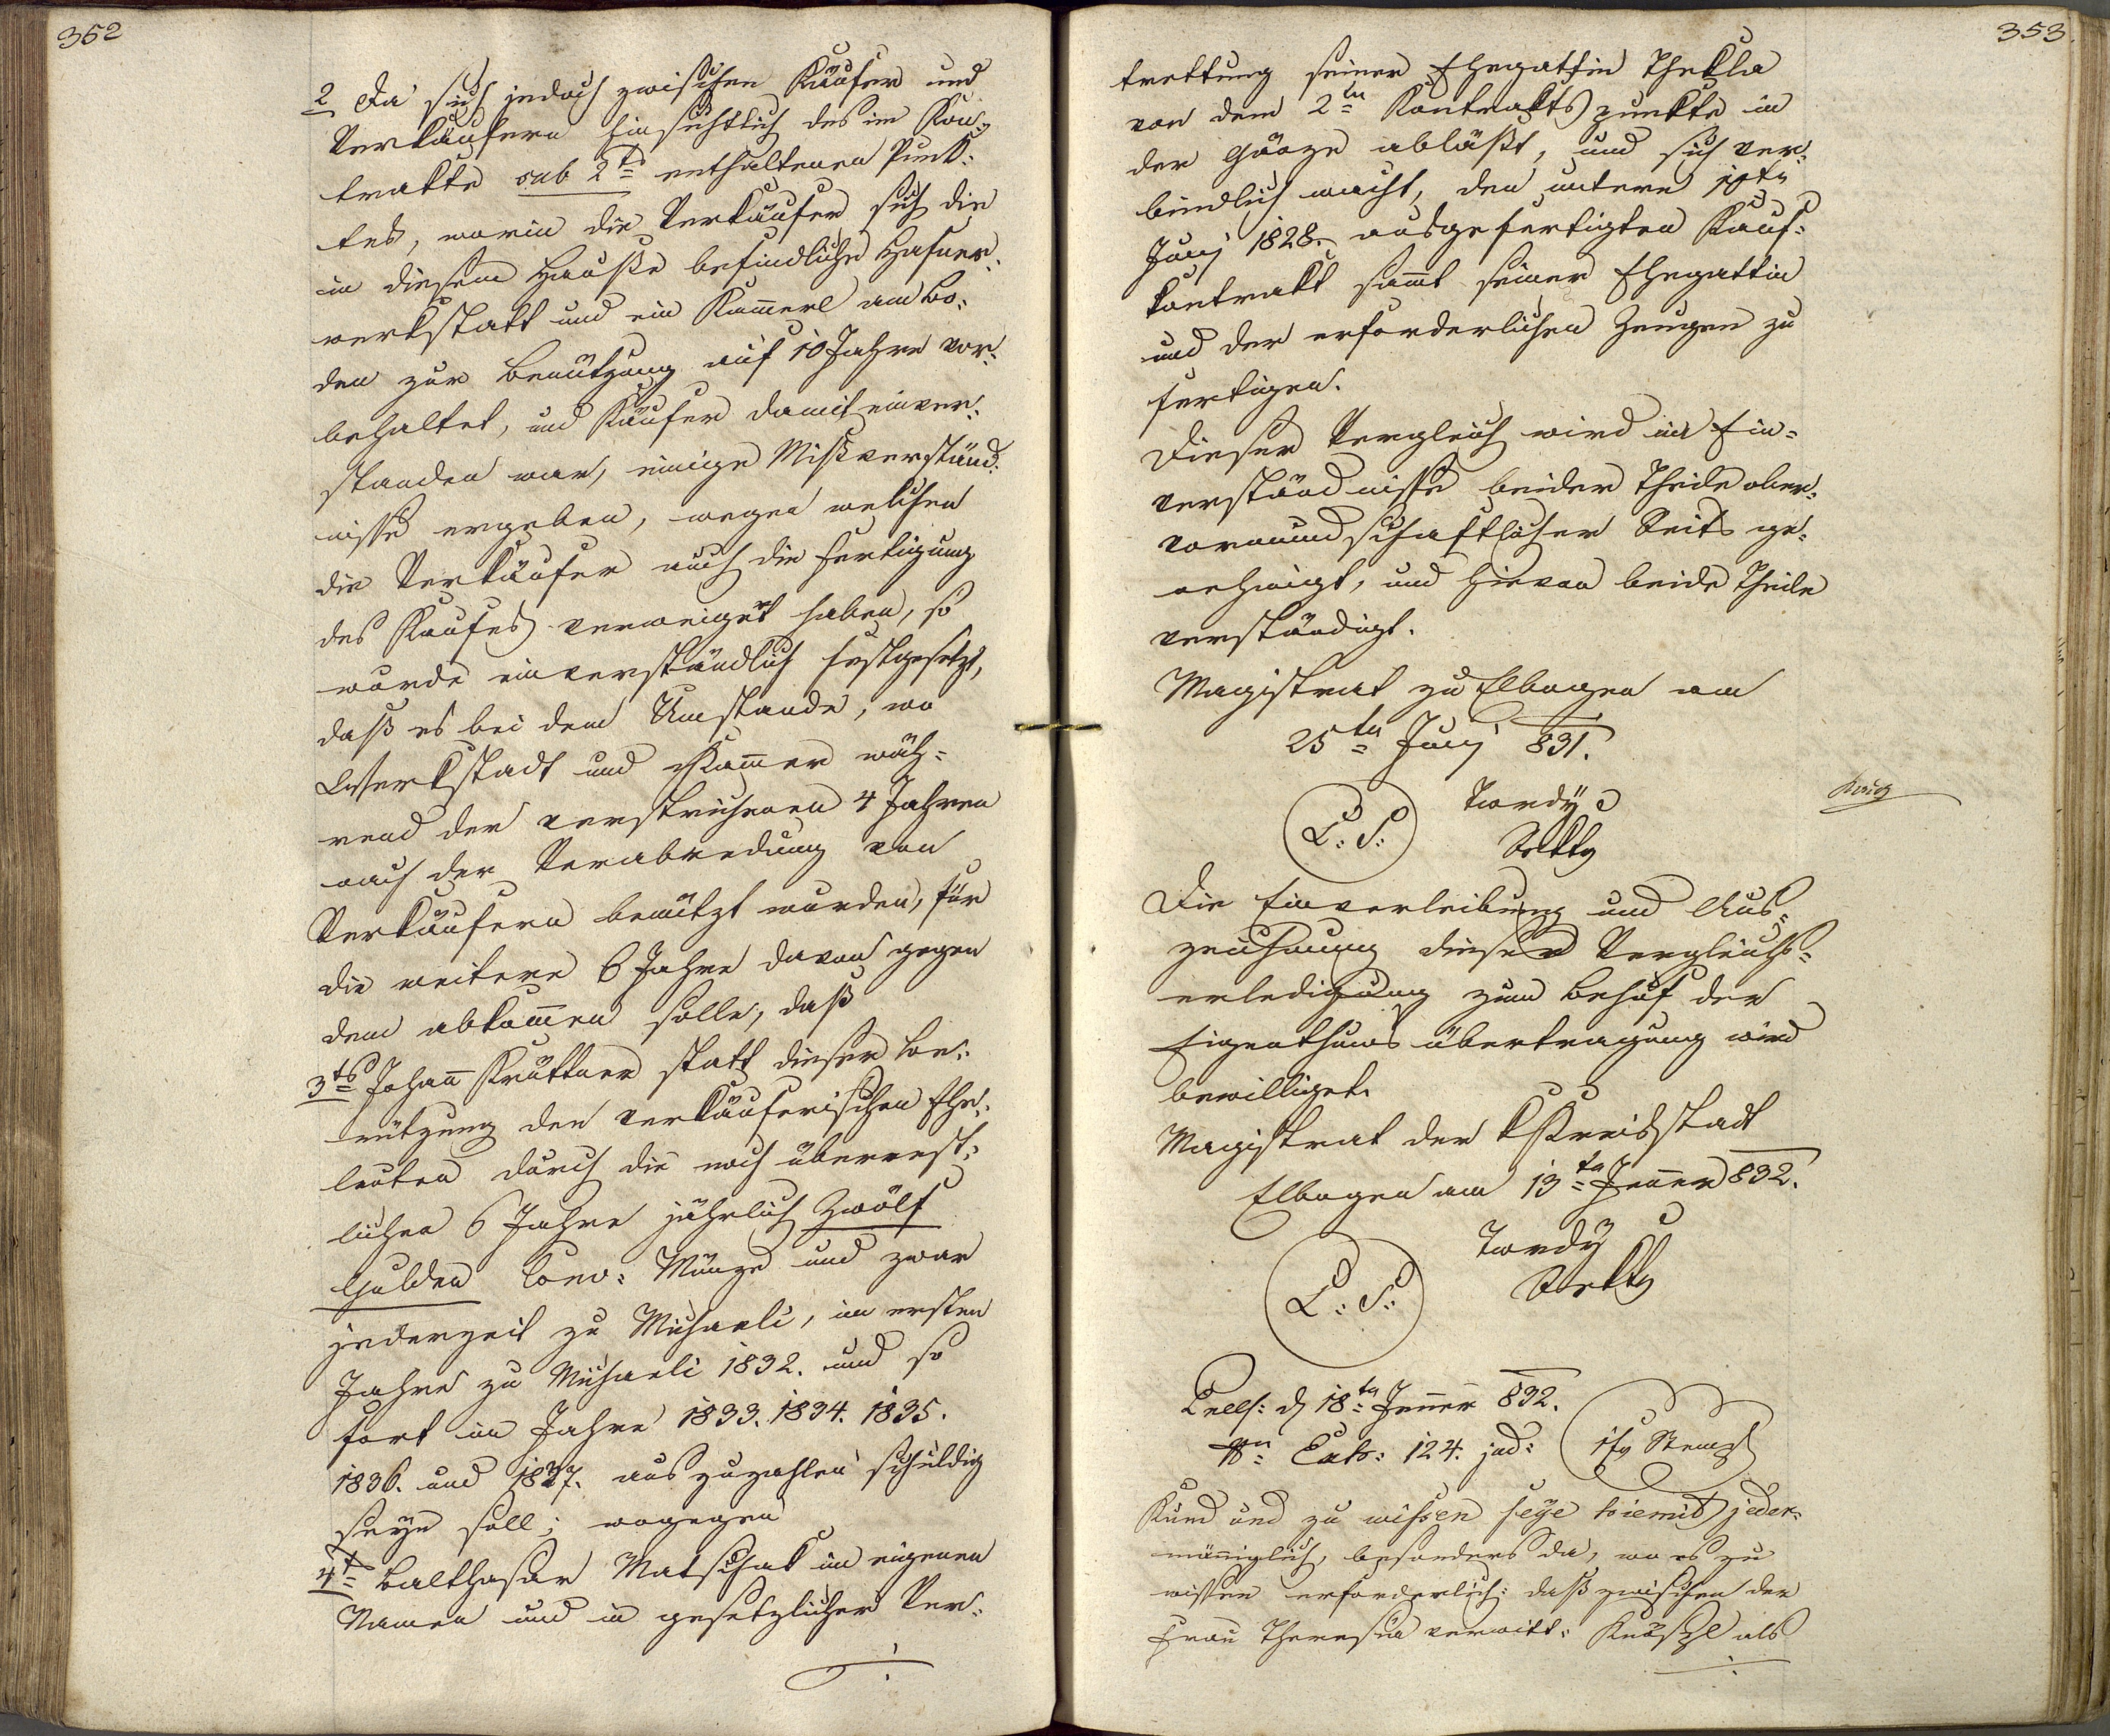 352
2 Da sich jedoch zwischen Käufer und
Verkäufern hinsichtlich des im Kon-
trakte sub 2ts enthaltenen Punk-
tes, worin die Verkäufer sich die
in diesem Hause befindliche Hafner-
werkstatt und ein Kam̄erl am Bo-
den zur Benützung auf 10 Jahre vor-
behaltet, und Käufer damit einver-
standen war, einige Mißverständ-
nisse ergeben, wegen welchen
die Verkäufer auch die Fertigung
des Kaufes verweigert haben, so
wurde einverständlich festgesetzt,
daß es bei dem Umstande, wo
Werkstadt und Kam̄er wäh-
rend der verstrichenen 4 Jahren
nach der Verabredung von
Verkäufern benützt wurden, für
die weitere 6 Jahre davon gegen
dem abkom̄en solle, daß
3ts Johan̄ Kruttner statt dieser Be-
nützung den verkäuferischen Ehe-
leuten durch die noch überrest-
lichen 6 Jahre jährlich Zwölf
Gulden Conv: Münze und zwar
jederzeit zu Michaeli, im ersten
Jahre zu Michaeli 1832. und so
fort im Jahre 1833. 1834. 1835.
1836. und 1837. auszuzahlen schuldig
seyn soll; wogegen
4t Balthasar Matschak im eigenen
Namen und in gesetzlicher Ver-
353
trettung seiner Ehegattin Thekla
von dem 2ten Kontraktspunkte in
der Gänze abläßt, und sich ver-
bindlich macht, den unterm 10ten
Junj 1828. ausgefertigten Kauf-
kontrakt sam̄t seiner Ehegattin
und der erforderlichen Zeugen zu
fertigen.
Dieser Vergleich wird im Ein-
verständnisse beider Theile ober-
vormundschaftlicher Seits ge-
nehmigt, und hievon beide Theile
verständigt.
Magistrat zu Elbogen am
25ten Junj 831.
L: S: Tordÿ
Die Einverleibung und Aus-
zeichnung dieser Vergleichs-
erledigung zum Behuf der
Eigenthums übertragung wird
bewilliget.
Magistrat der k Kreisstadt
Elbogen am 13ten Jenner 832.
L: S: Tordÿ
18ten Jenner 832.
124. jud:
Kund und zu wissen seye hiemit jeder-
män̄iglich, besonders da, wo es zu
wissen erforderlich: daß zwischen der
Frau Theresia verwitt: als